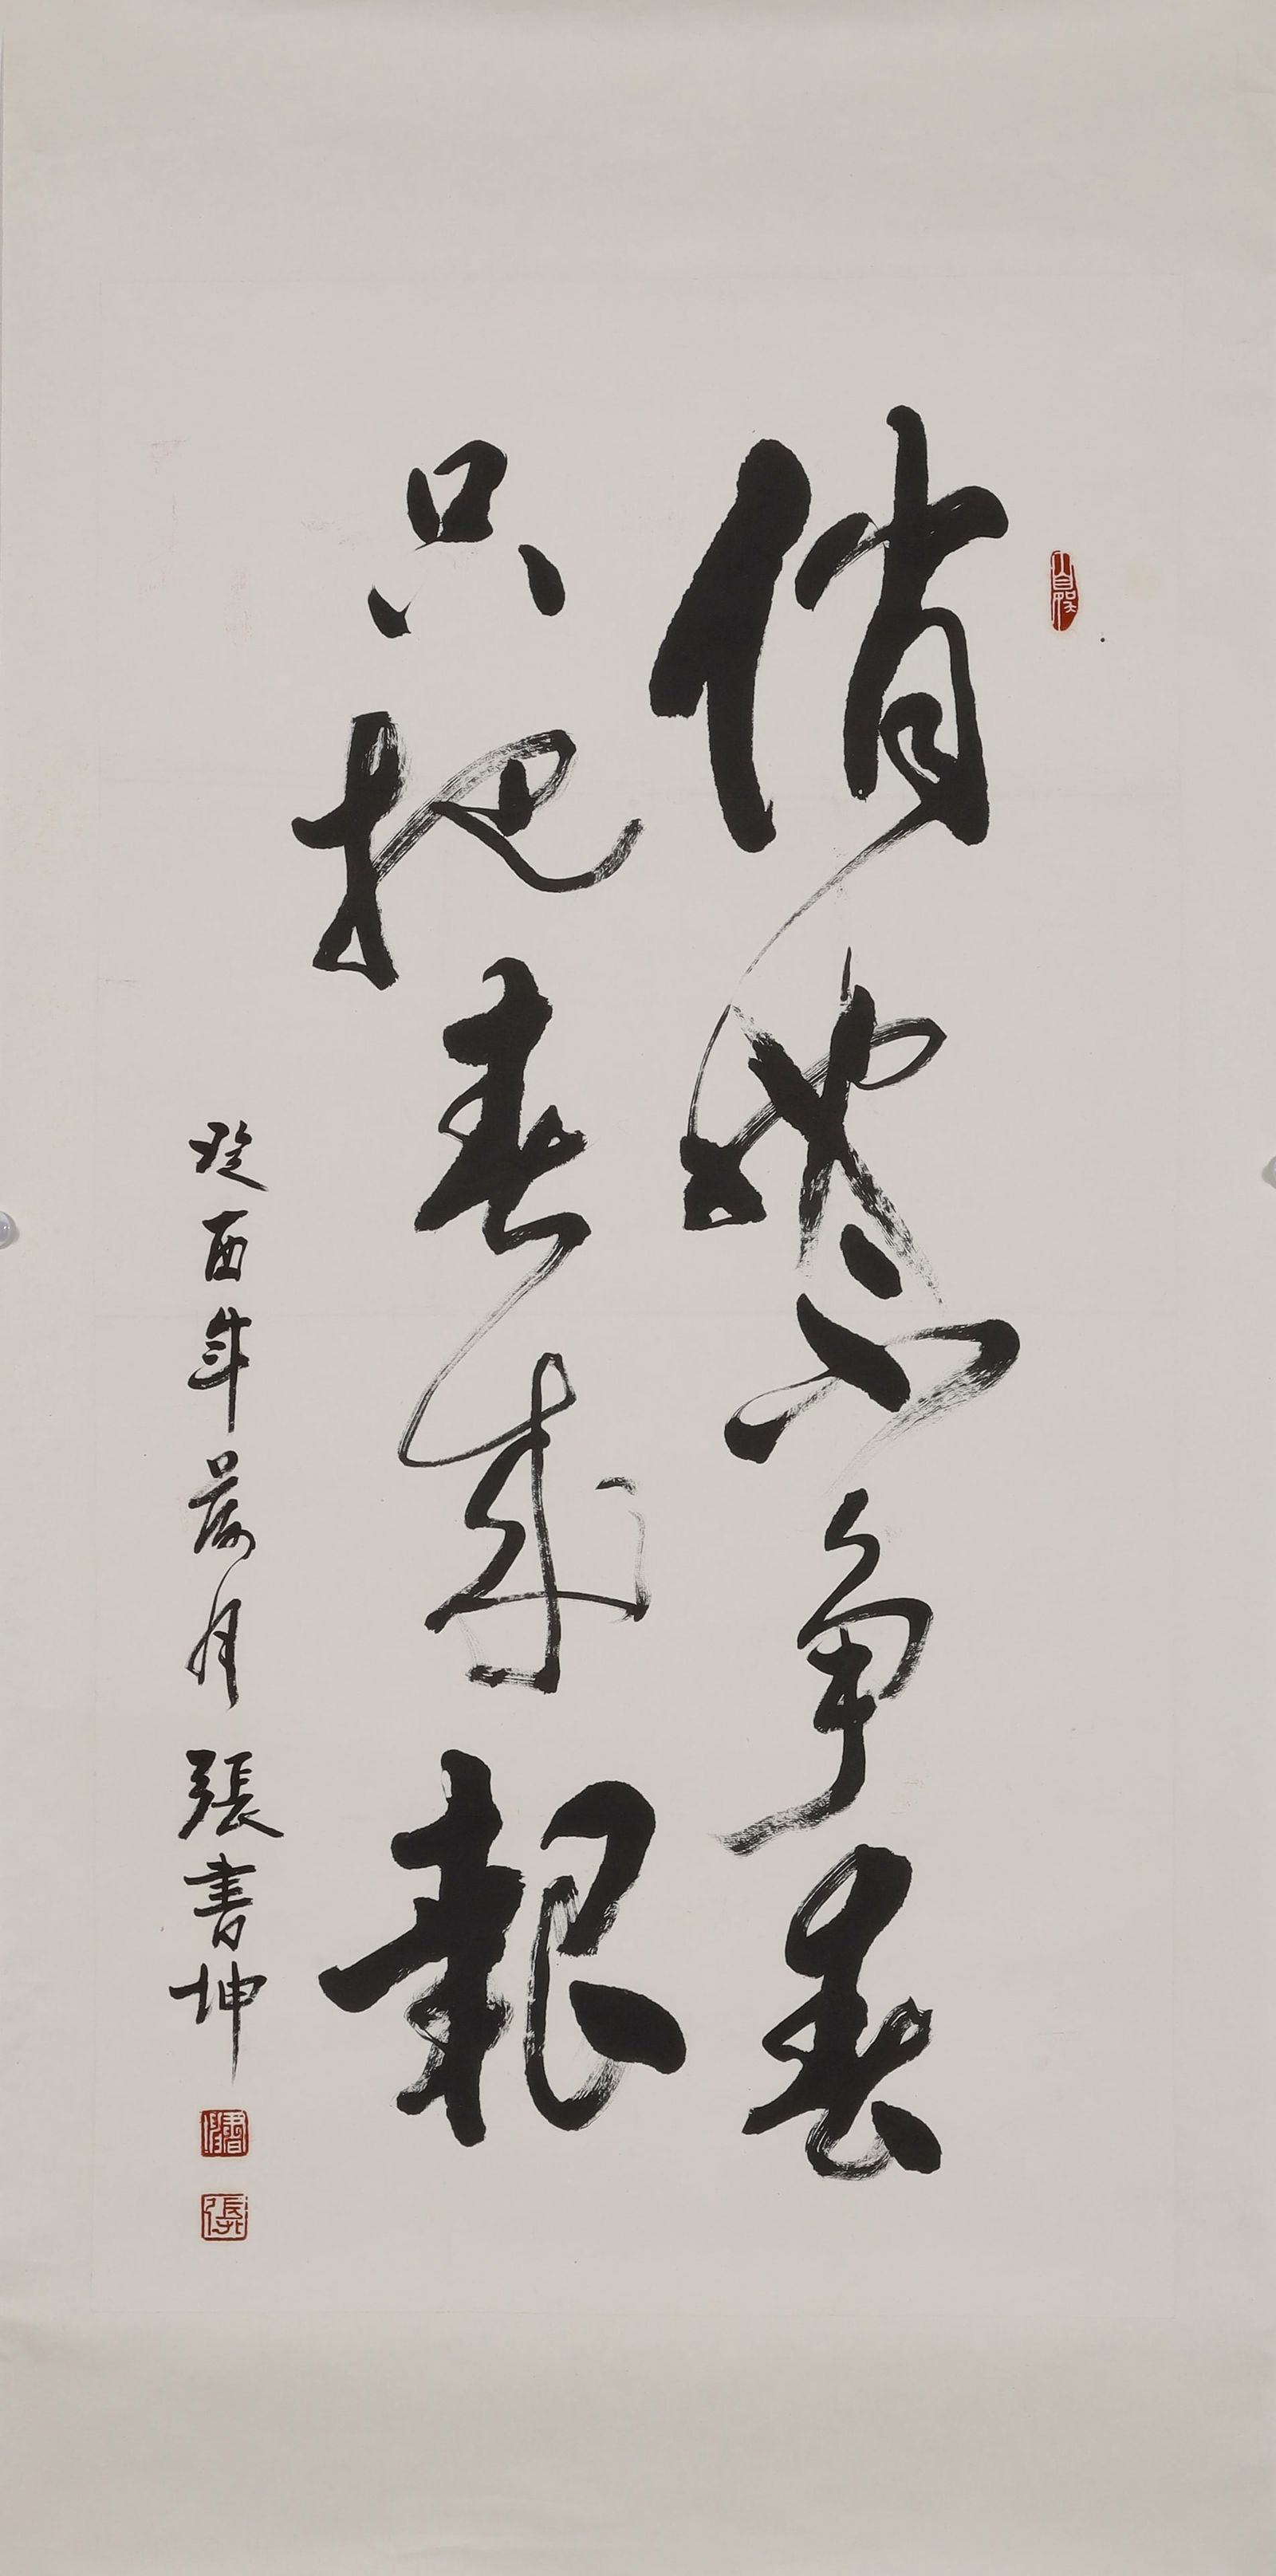 俏也不争春
只把春来報
癸酉年月張書坤